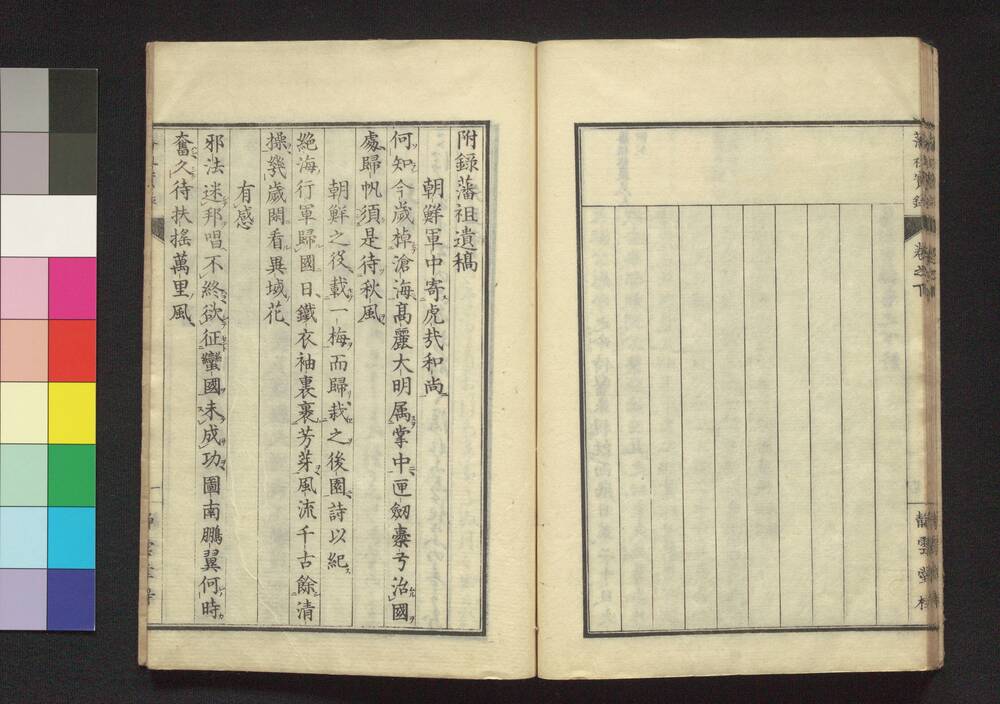 卷之下
附錄藩祖遺稿
朝鮮軍中寄虎哉和尚
何知今歲棹滄海高麗大明属掌中匣劒櫜弓治國
處歸帆須是待秋風
朝鮮之役載一梅而歸栽之後園詩以紀
絕海行軍歸國日鐵衣袖裏裹芳芽風流千古餘清
操幾歲閑看異域花
有感
邪法迷邦唱不終欲征蠻國未成功圖南鵬翼何時
奮久待扶搖萬里風